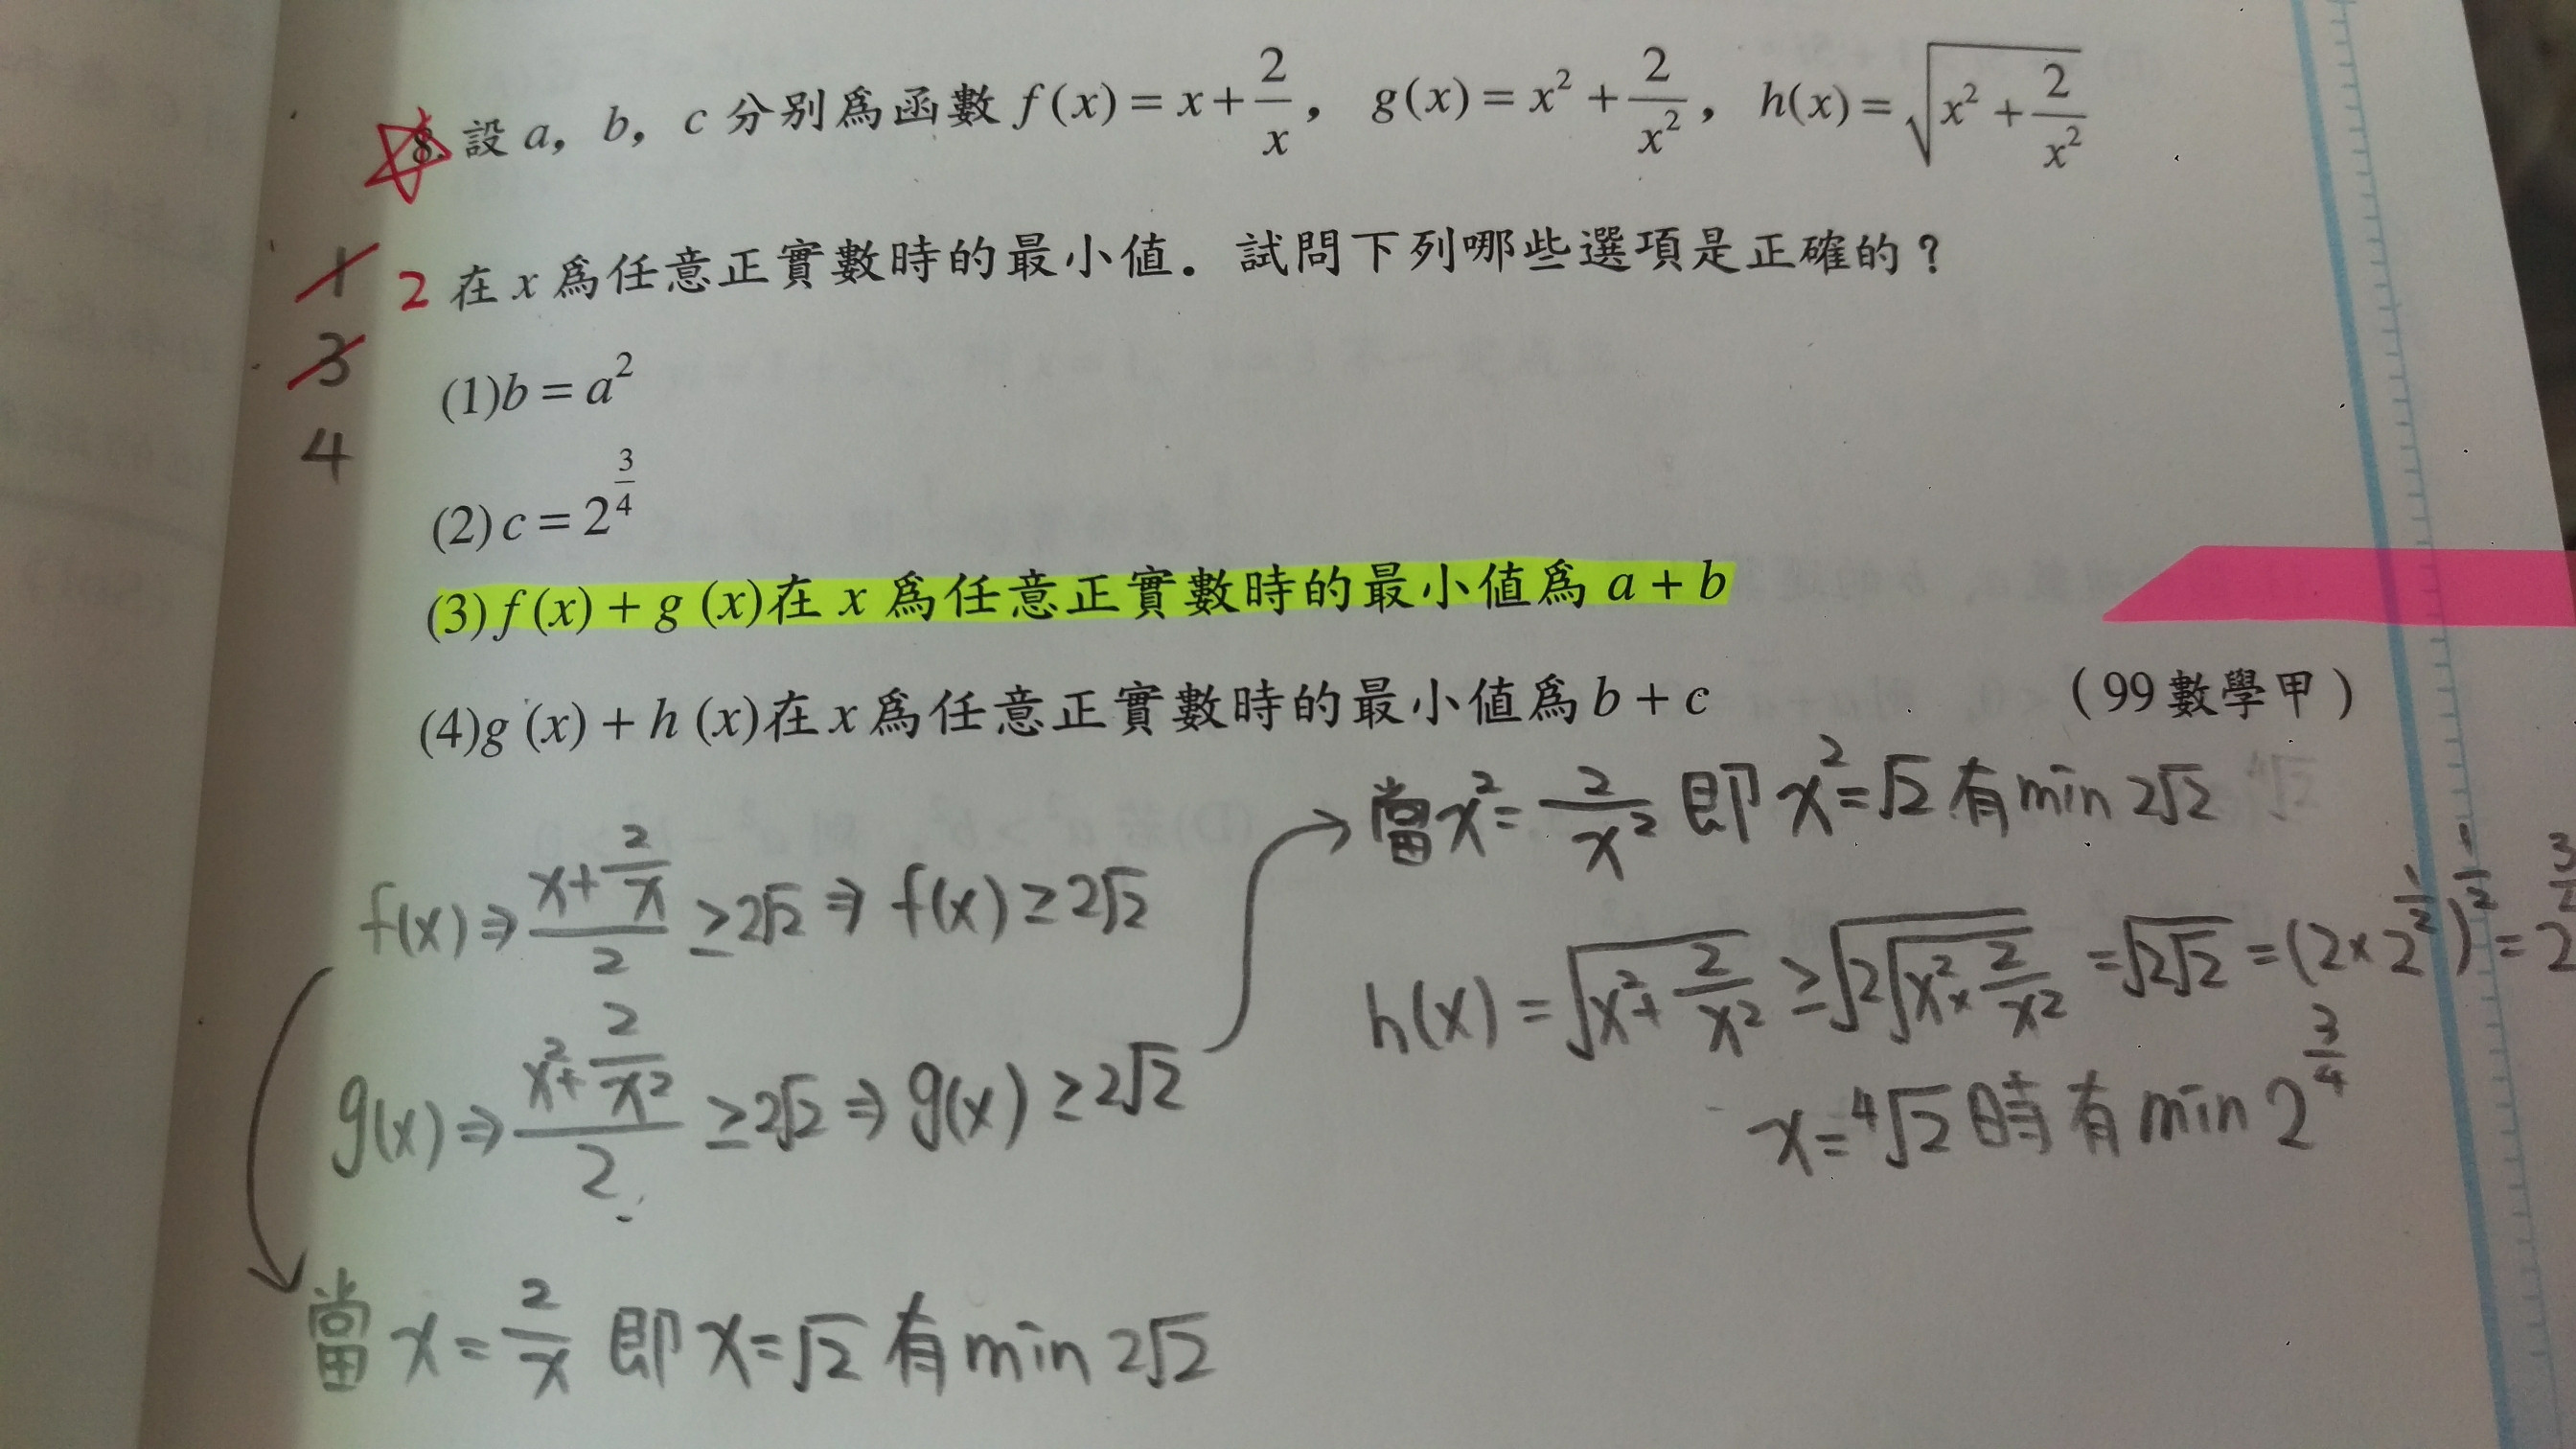 8. 設 a, b, c 分別為函數 f(x) = x + 2/x, g(x) = x² + 2/x², h(x) = √(x² + 2/x²)
2 在 x 為任意正實數時的最小值. 試問下列哪些選項是正確的?
1
3
4
(1) b = a²
(2) c = 2^(3/4)
(3) f(x) + g(x)在 x 為任意正實數時的最小值為 a + b
(4) g(x) + h(x)在 x 為任意正實數時的最小值為 b + c
(99 數學甲)
f(x) ⇒ (x + 2/x)/2 ≥ 2√2 ⇒ f(x) ≥ 2√2
g(x) ⇒ (x² + 2/x²)/2 ≥ 2√2 ⇒ g(x) ≥ 2√2
當 x = 2/x 即 x = √2 有 min 2√2
當 x² = 2/x² 即 x² = √2 有 min 2√2
h(x) = √(x² + 2/x²) ≥ √(2√(x² × 2/x²)) = √(2√2) = (2 × 2^(1/2))^(1/2) = 2
x = ⁴√2 時有 min 2^(3/4)